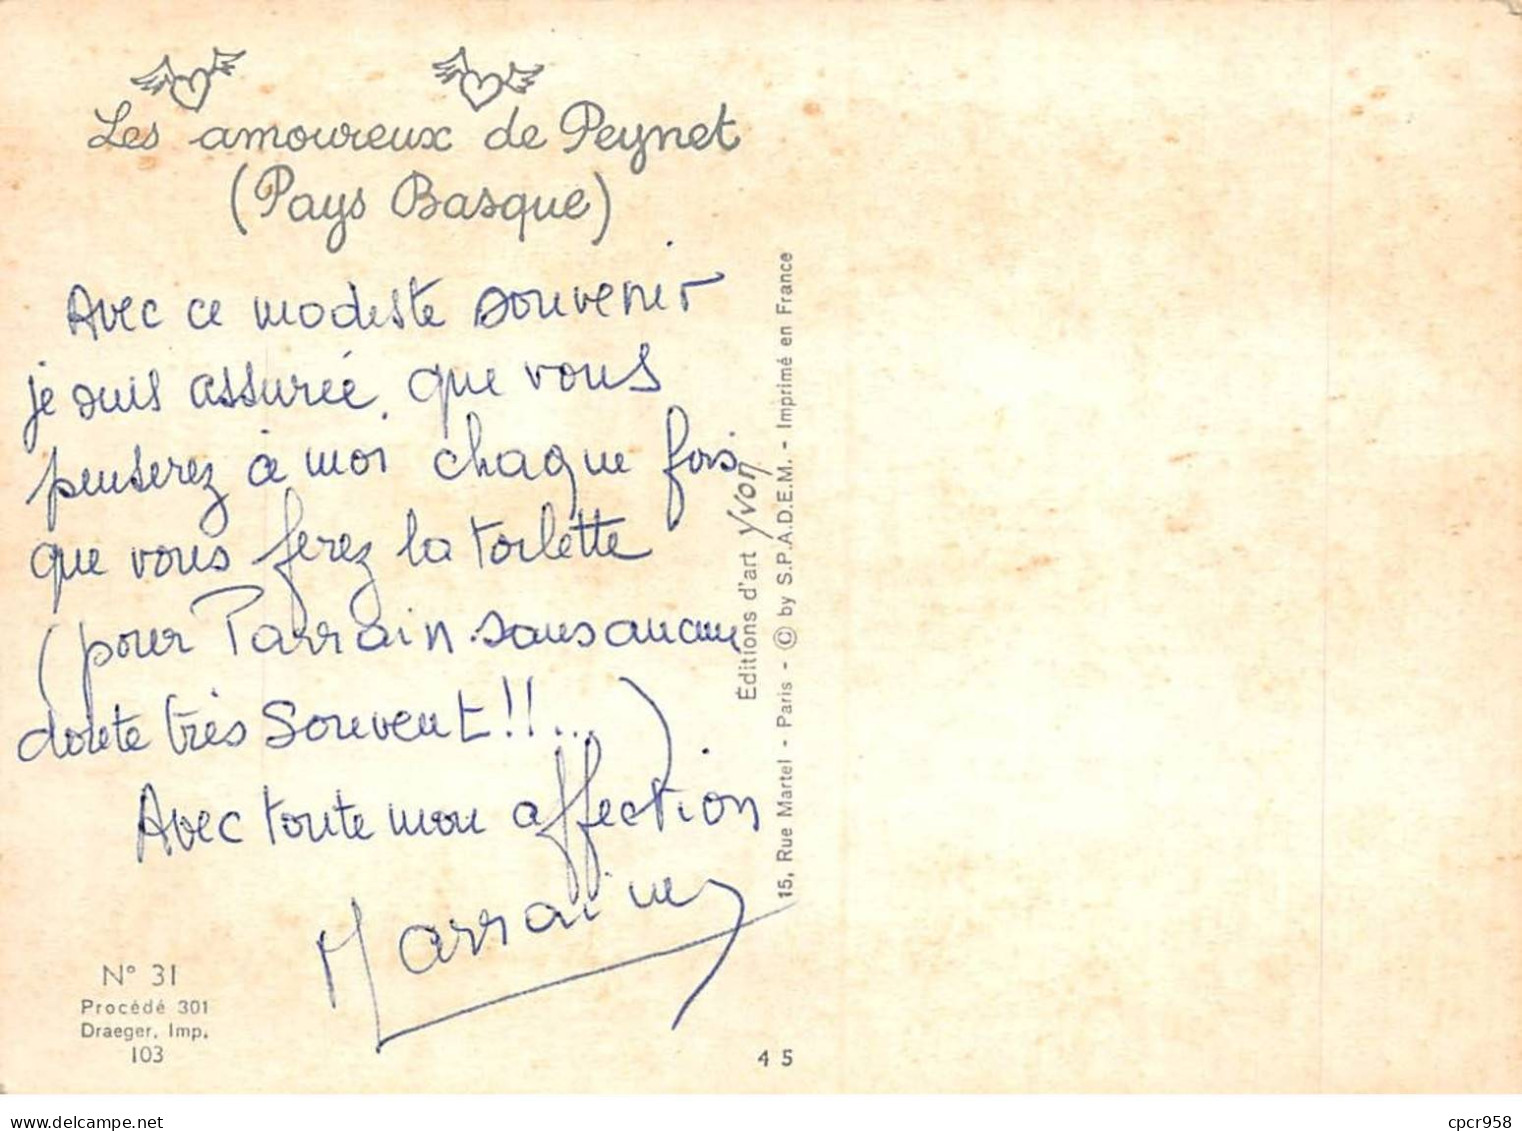 Les amoureux de Peynet
(Pays Basque)
Avec ce modeste souvenir
je suis assurée, que vous
penserez à moi chaque fois
que vous ferez la toilette
(pour Parrain sans aucun
doute très souvent!!...)
Avec toute mon affection
Marraine
N° 31
Procédé 301
Draeger, Imp.
103
Éditions d'art Yvon
15, Rue Martel - Paris - © by S.P.A.D.E.M. - Imprimé en France
45
www.delcampe.net
cpcr958